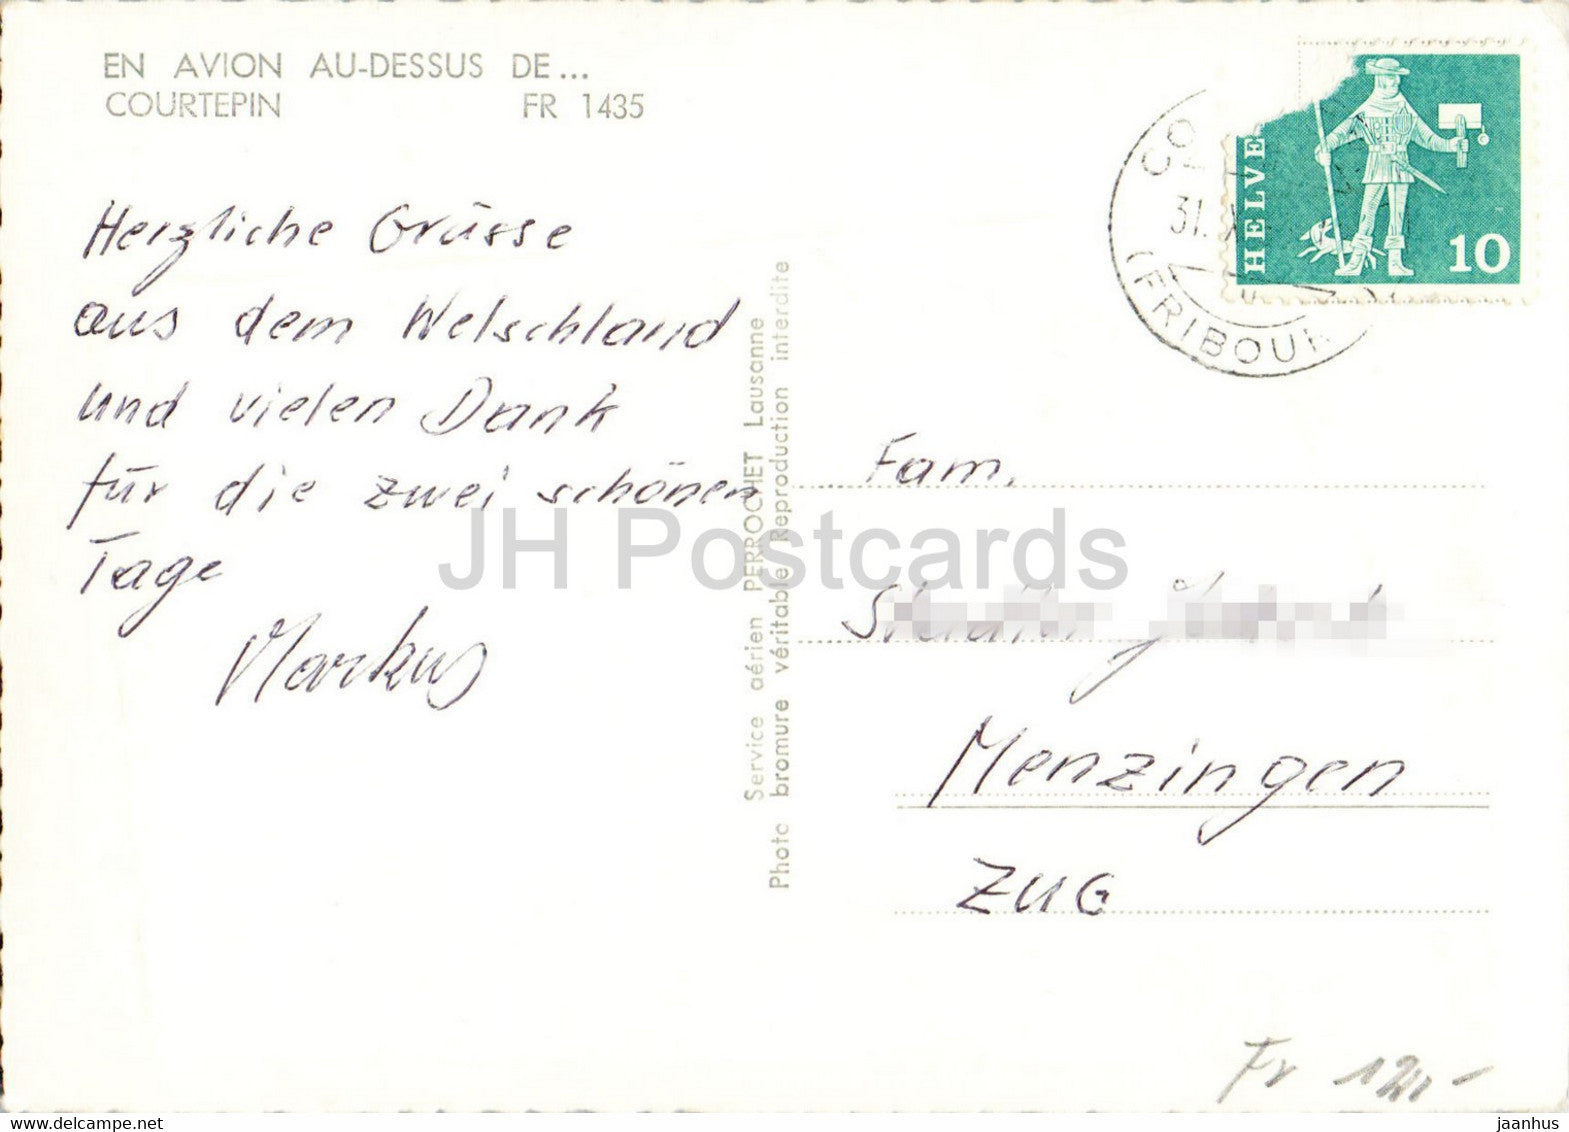 EN AVION AU-DESSUS DE...
COURTEPIN FR 1435
Herzliche Grüsse
aus dem Welschland
und vielen Dank
für die zwei schönen
Tage
Markus
Service aérien PERROCHET Lausanne
Photo bromure véritable Reproduction interdite
HELVE
10
31. X
(FRIBOUR
Fam.
Menzingen
ZUG
Fr
JH Postcards
delcampe.net
jaanhus